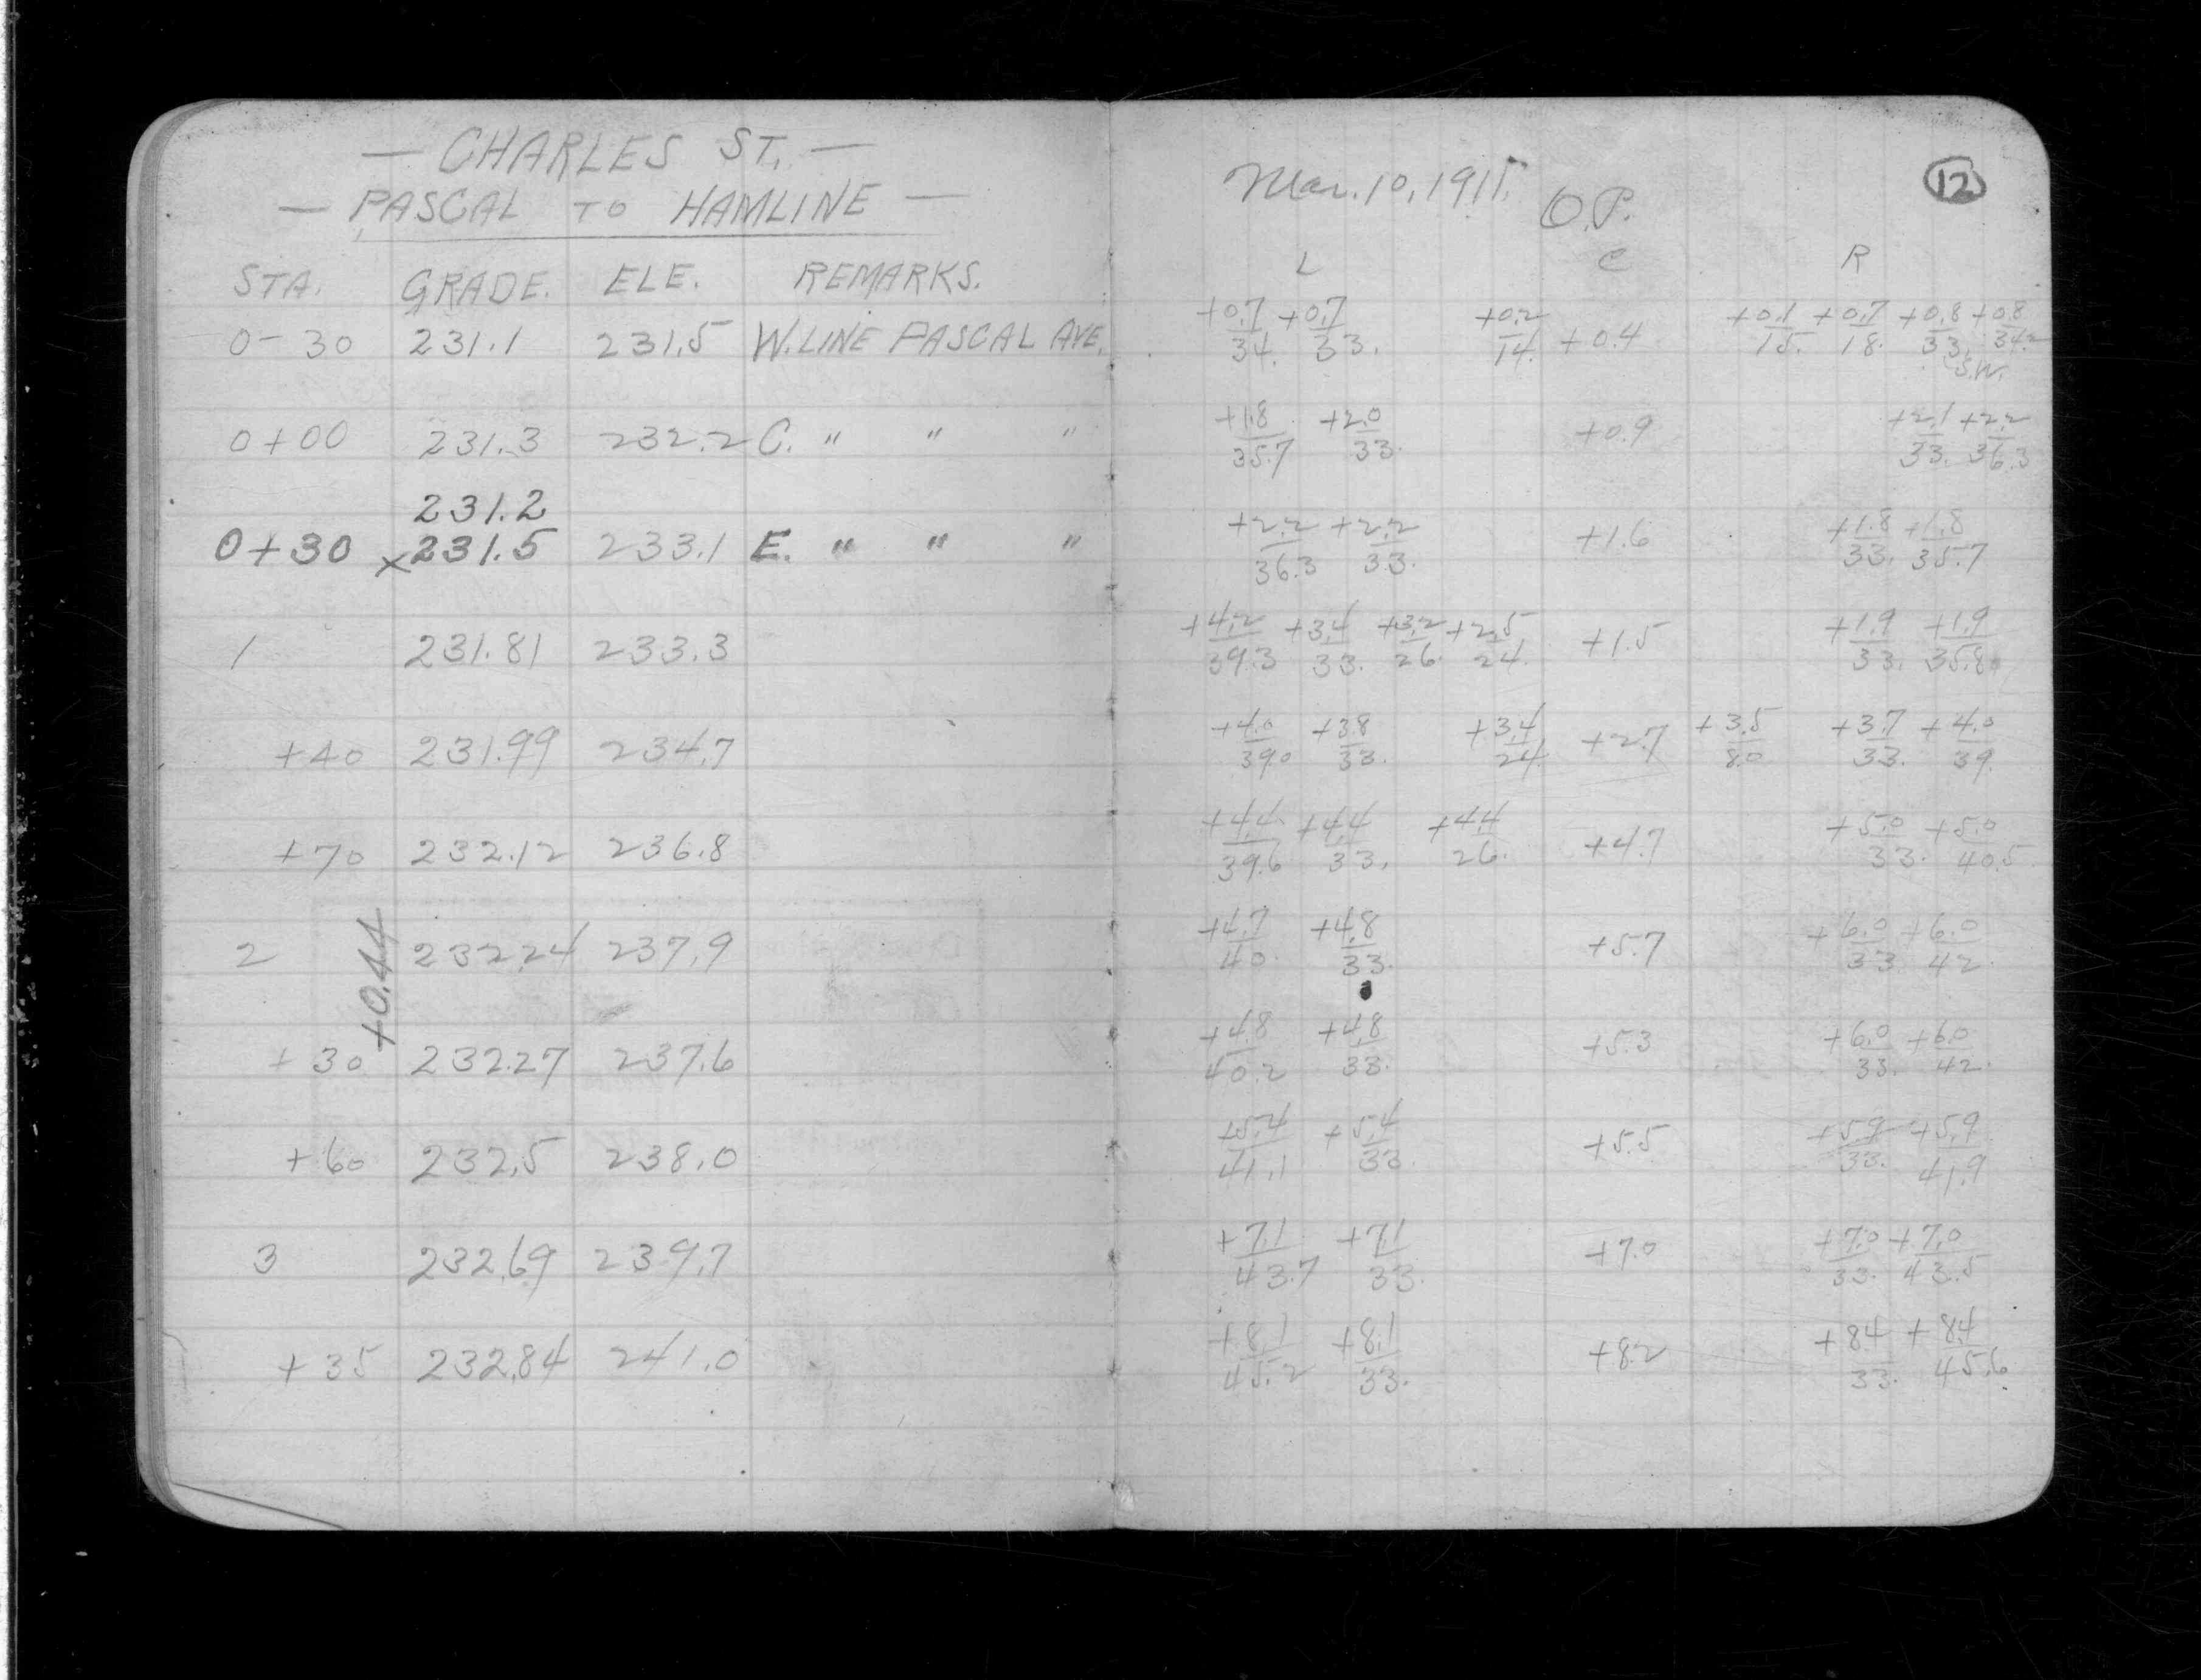 — CHARLES ST. —
— PASCAL TO HAMLINE —
STA. GRADE. ELE. REMARKS.
0-30 231.1 231.5 W. LINE PASCAL AVE.
0+00 231.3 232.2 C. " " "
231.2
0+30 ×231.5 233.1 E. " " "
1 231.81 233.3
+40 231.99 234.7
+70 232.12 236.8
2 232.24 237.9
+0.44
+30 232.27 237.6
+60 232.5 238.0
3 232.69 239.7
+35 232.84 241.0
Mar. 10, 1915. O.P. 12
L C R
+0.7/34. +0.7/33. +0.2/14. +0.4 +0.1/15. +0.7/18. +0.8/33. +0.8/34.2
S.W.
+1.8/35.7 +2.0/33. +0.9 +2.1/33. +2.2/36.3
+2.2/36.3 +2.2/33. +1.6 +1.8/33. +1.8/35.7
+4.2/39.3 +3.4/33. +3.2/26. +2.5/24. +1.5 +1.9/33. +1.9/35.8
+4.0/39.0 +3.8/33. +3.4/24. +2.7 +3.5/8.0 +3.7/33. +4.0/39.
+4.4/39.6 +4.4/33. +4.4/26. +4.7 +5.0/33. +5.0/40.5
+4.7/40. +4.8/33. +5.7 +6.0/33 +6.0/42.
+4.8/40.2 +4.8/33. +5.3 +6.0/33. +6.0/42.
+5.4/41.1 +5.4/33. +5.5 +5.9/33. +5.9/41.9
+7.1/43.7 +7.1/33. +7.0 +7.0/33. +7.0/43.5
+8.1/45.2 +8.1/33. +8.2 +8.4/33. +8.4/45.6